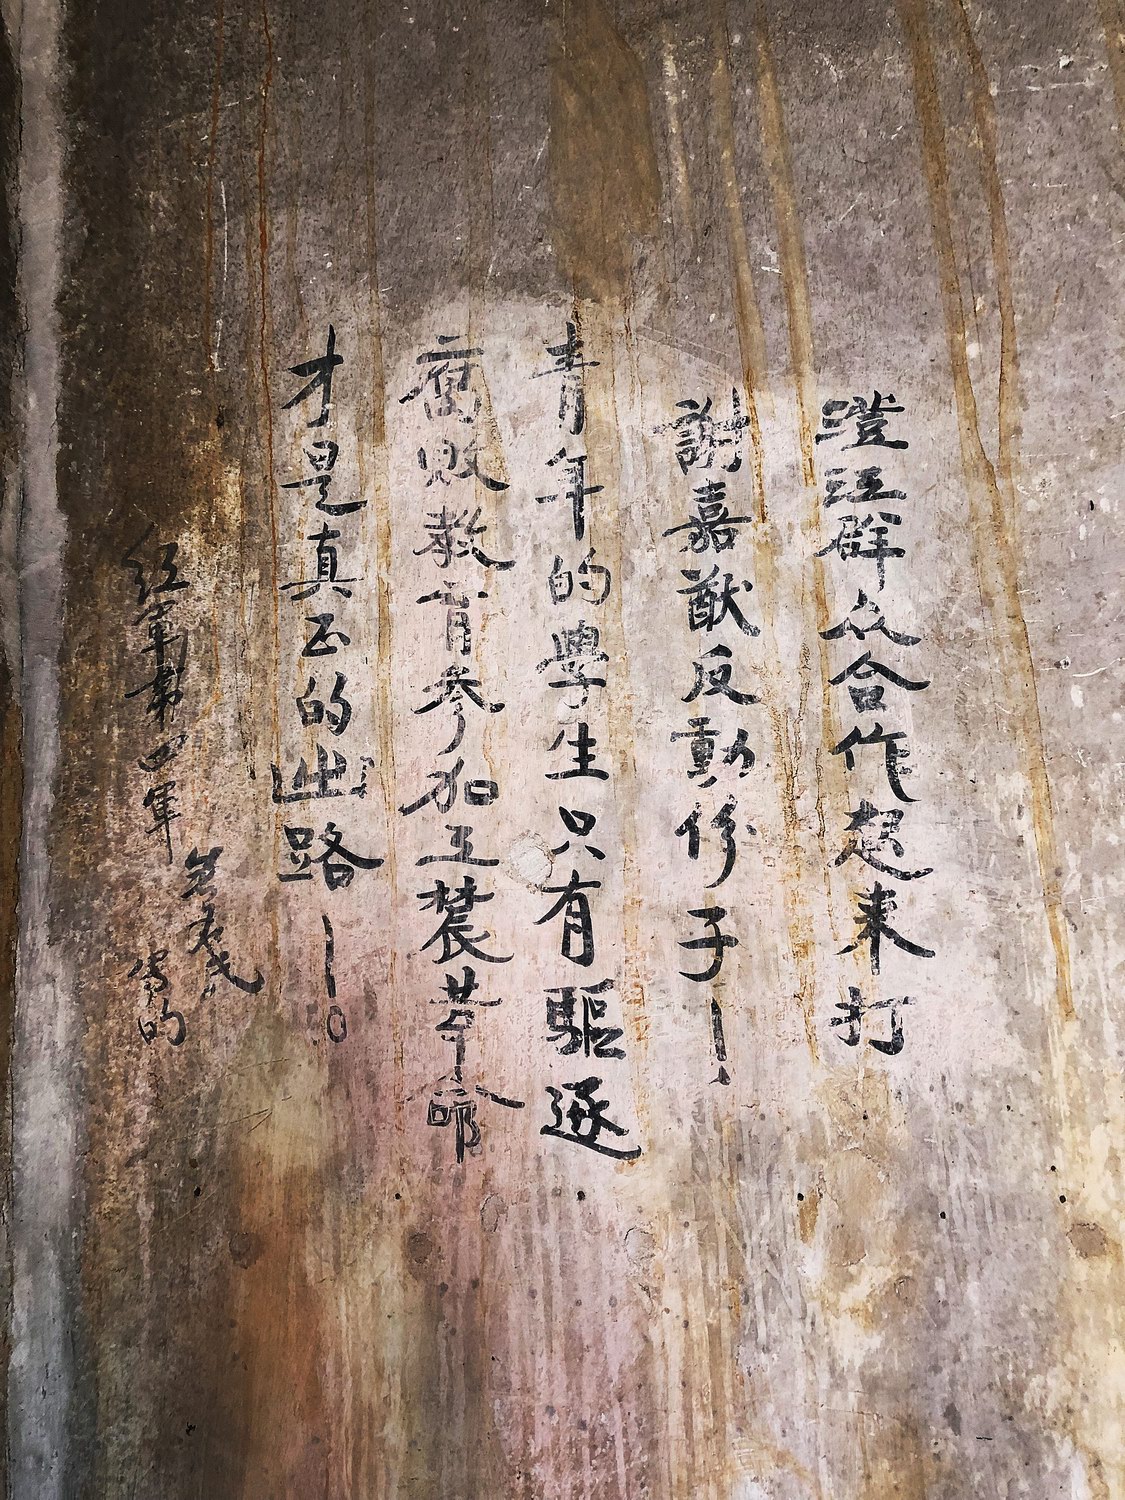 澄江群众合作起来打
謝嘉猷反動份子——
青年的學生只有驅逐
腐敗教育参加工農革命
才是真正的出路——。
红軍第四軍
的